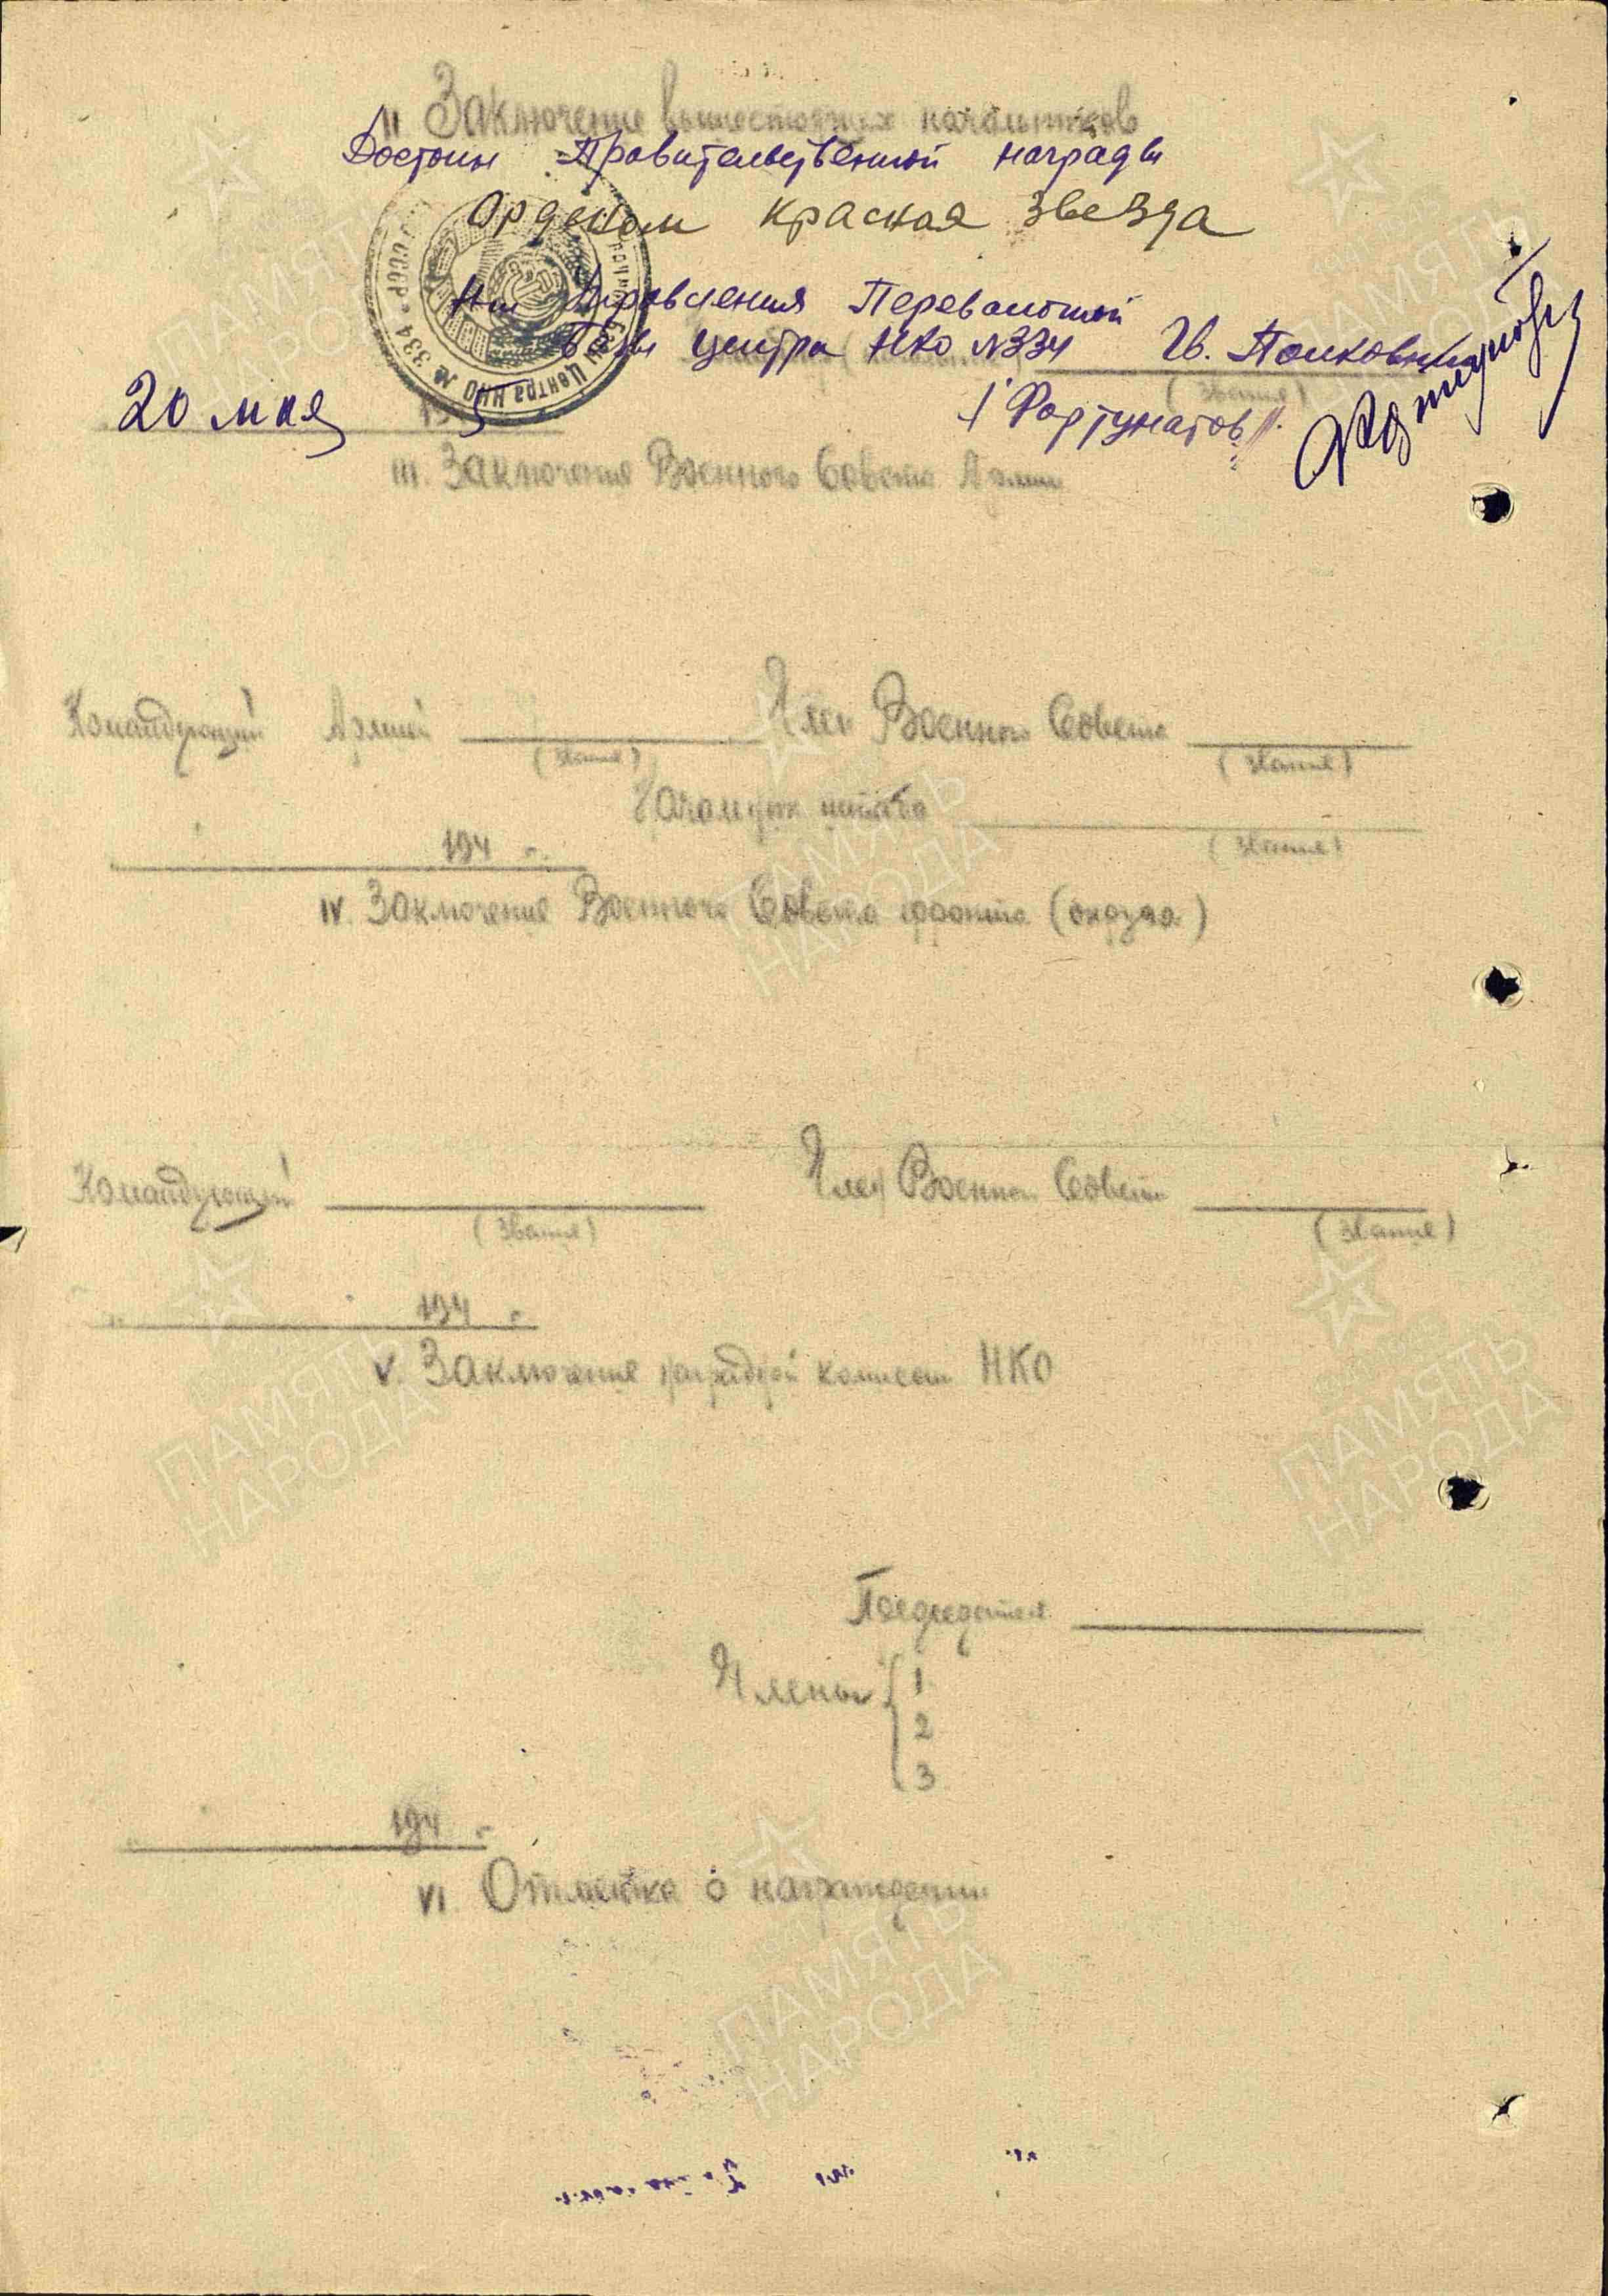 II Заключение вышестоящих начальников
Достоин Правительственной награды
Орденом красная звезда
Нач Управления Перевалочной
Базы Центра НКО №334 Гв. Полковник
(звание)
/Фортунатов/.
20 мая 5
III. Заключение Военного Совета Армии
Командующий Армией Член Военного Совета
(звание) (звание)
Начальник штаба
(звание)
194 г.
IV. Заключение Военного Совета фронта (округа)
Командующий Член Военного Совета
(звание) (звание)
194 г
V. Заключение наградной комиссии НКО
Председатель
Члены 1
2
3
194 г
VI. Отметка о награждении
ПАМЯТЬ
НАРОДА